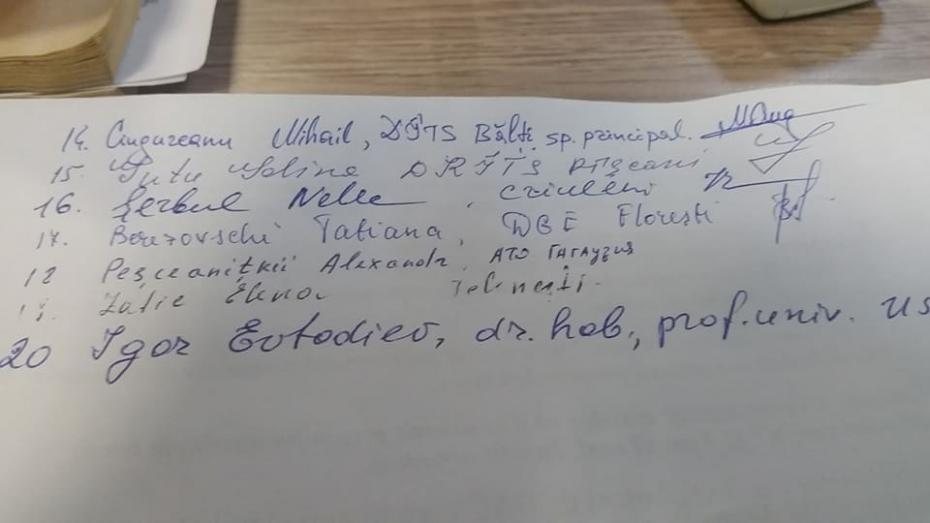 14. Ciugureanu Mihail, DÎTS Bălți sp. principal.
15. Tutu DRÎTS Rîșcani
16. Șerbul Nelle, Criuleni
17. Berezovschi Tatiana, DGE Florești
18 Peșceanițkii Alexandr, ATO Гагаузия
19. Elena Telenești.
20 Igor Evtodiev, dr. hab., prof. univ. US